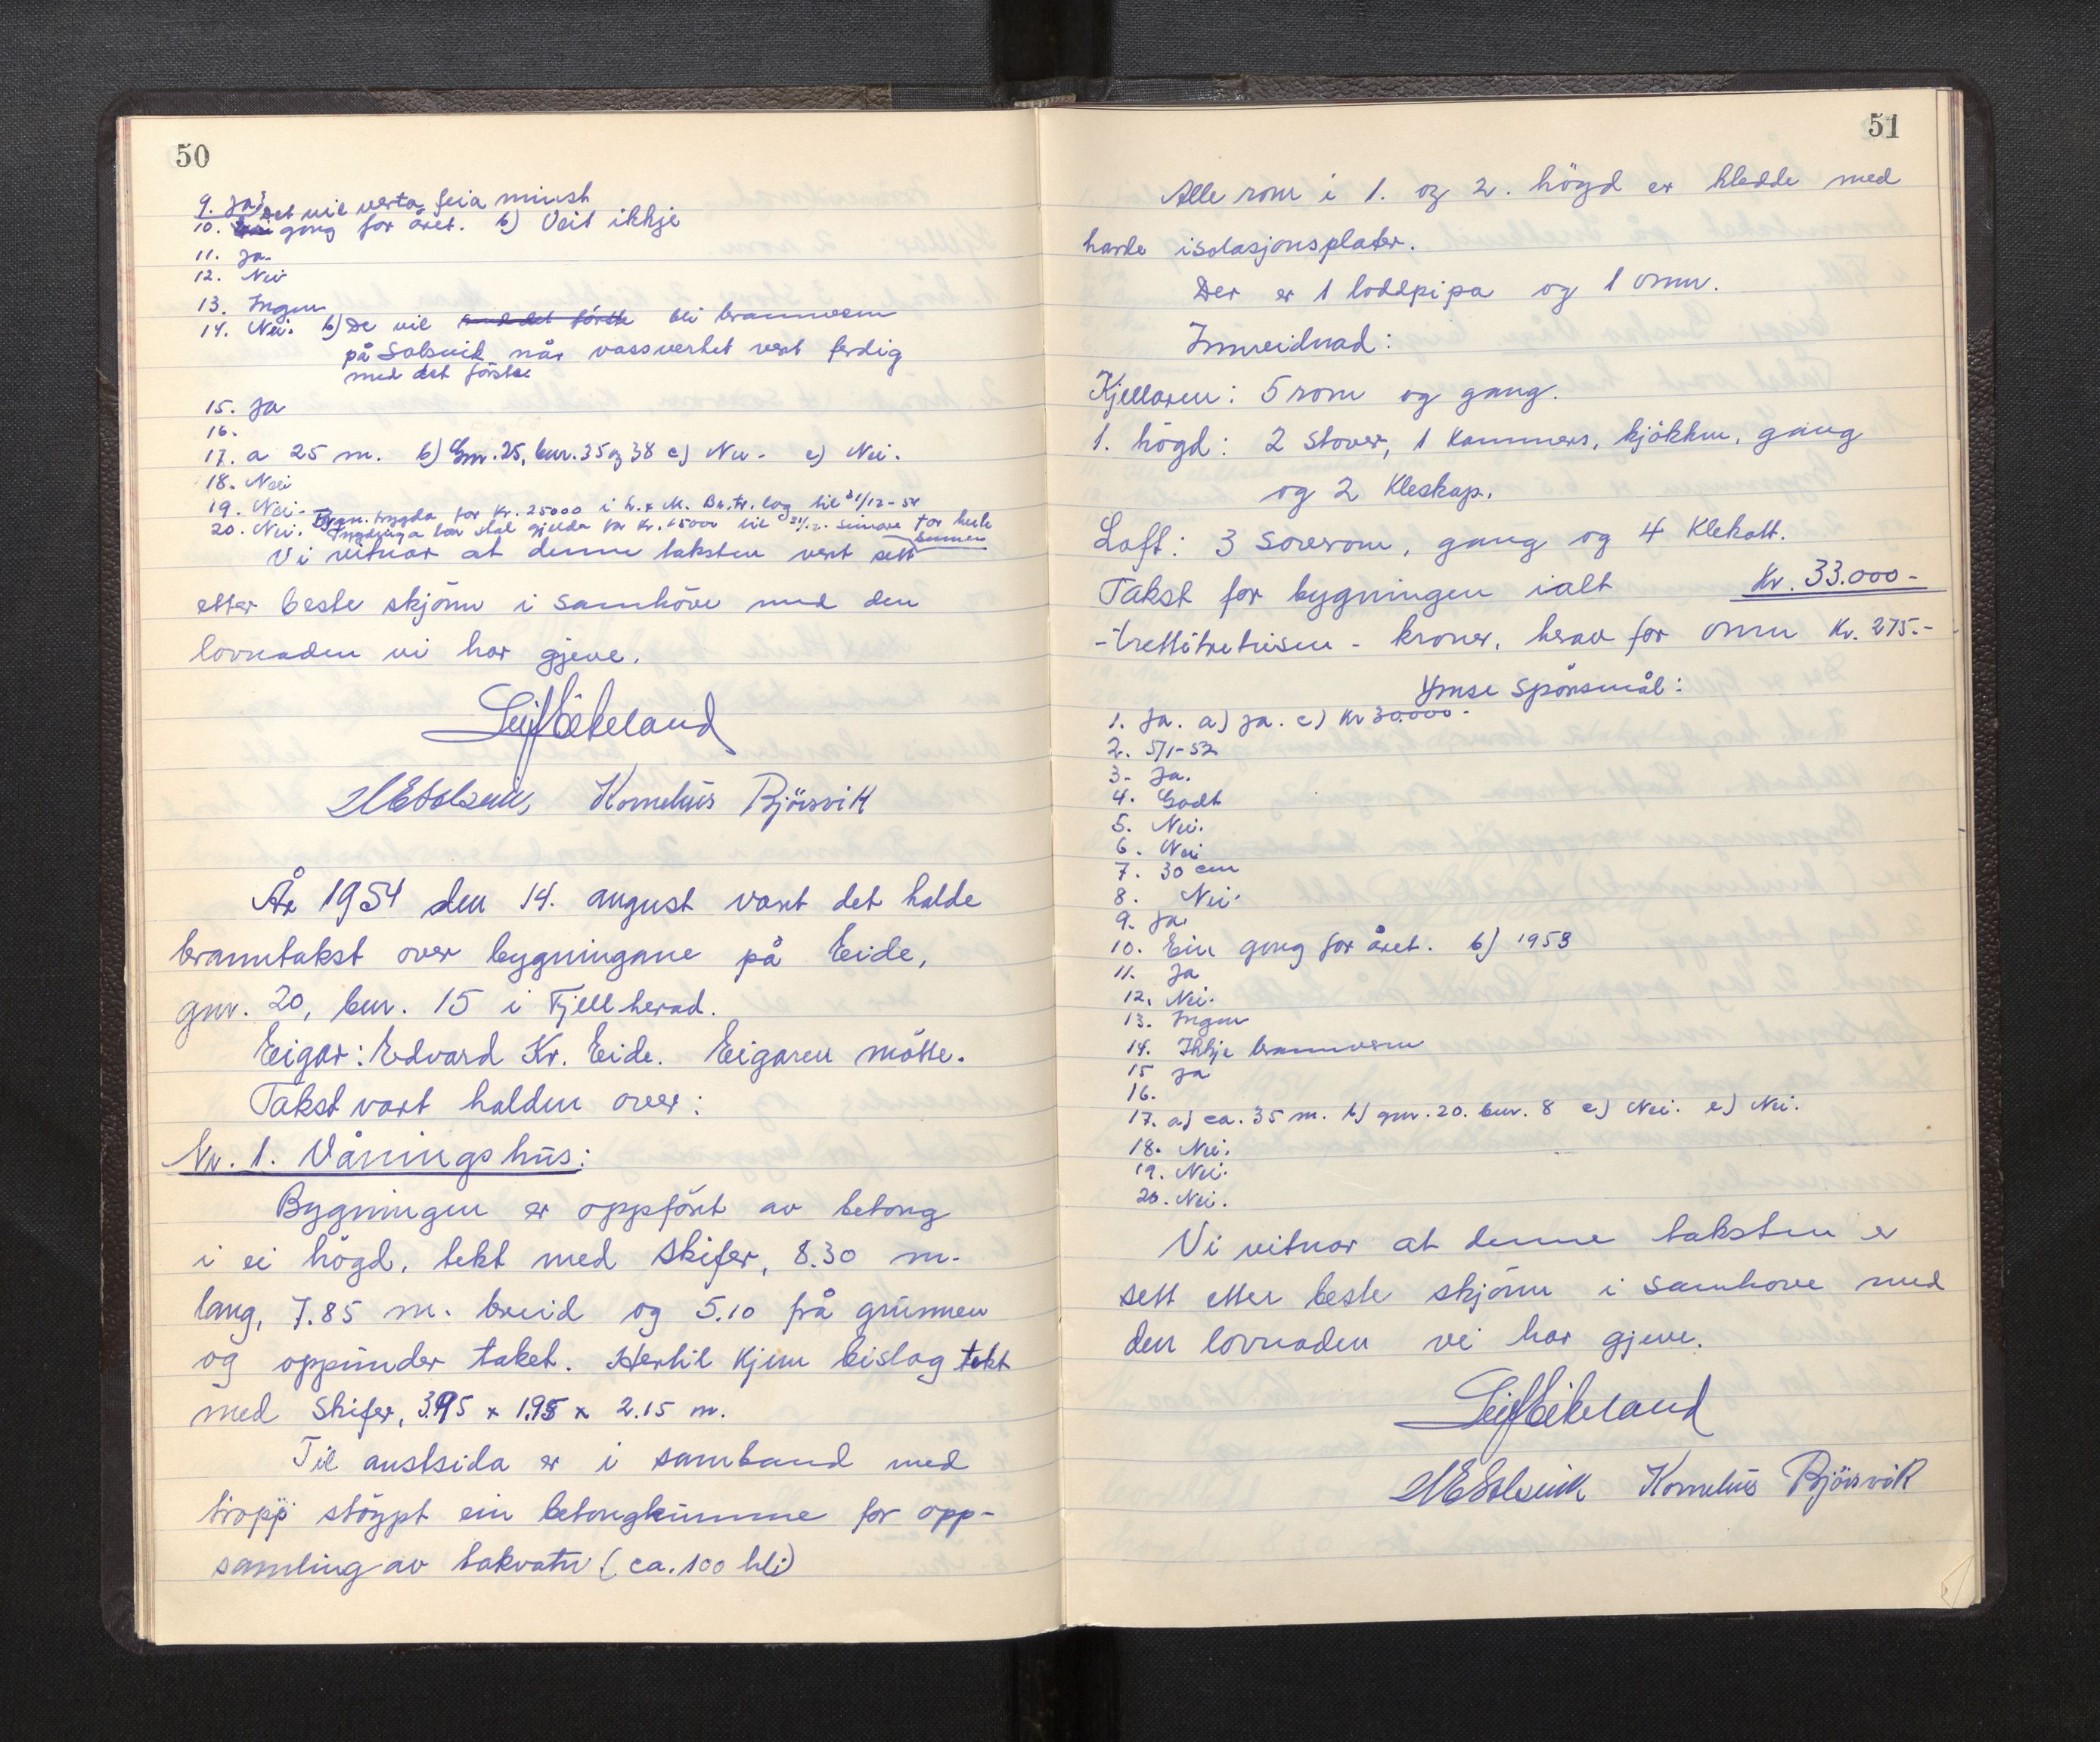 50
9. Ja
10. Det vil verta feia minst
gong for året. b) Veit ikkje
11. Ja.
12. Nei
13. Ingen
14. Nei. b) De vil med det første bli brannvern
på Solsvik når vassverket vert ferdig
med det første
15. Ja
16.
17. a 25 m. b) Gnr. 25, bnr. 35 og 38 c) Nei. e) Nei.
18. Nei
19. Nei. Bygn. trygda for Kr. 25000 i h. & M. Br.tr.lag til 31/12-54
20. Nei. Trygdinga skal gjelda for Kr. 15000 til 31/12. seinare for heile
summen
Vi vitnar at denne taksten vert sett
etter beste skjönn i samhöve med den
lovnaden vi har gjeve.
Leif Eikeland
M E Solsvik, Kornelius Björsvik
År 1954 den 14. august vart det halde
branntakst over bygningane på Eide,
gnr. 20, bnr. 15 i Fjell herad.
Eigar: Edvard Kr. Eide. Eigaren mötte.
Takst vart halden over:
Nr. 1. Våningshus:
Bygningen er oppfört av betong
i ei högd, tekt med skifer, 8.30 m.
lang, 7.85 m. breid og 5.10 frå grunnen
og oppunder taket. Hertil kjem bislag tekt
med skifer, 3.95 x 1.95 x 2.15 m.
Til austsida er i samband med
tropp stöypt ein betongkumme for opp-
samling av takvatn (ca. 100 hl)
51
Alle rom i 1. og 2. högd er kledde med
harde isolasjonsplater.
Der er 1 loddpipa og 1 omn.
Innreidnad:
Kjellaren: 5 rom og gang.
1. högd: 2 stover, 1 kammers, kjökken, gang
og 2 kleskap.
Loft: 3 soverom, gang og 4 klekott.
Takst for bygningen ialt Kr. 33.000-
- trettitretusen - kroner, herav for omn Kr. 275.-
Ymse spörsmål:
1. Ja. a) ja. c) Kr 30.000-
2. 5/1-52
3. Ja.
4. Godt
5. Nei.
6. Nei
7. 30 cm
8. Nei.
9. Ja.
10. Ein gong for året. b) 1953
11. Ja
12. Nei.
13. Ingen
14. Ikkje brannvern
15 Ja
16.
17. a) ca. 35 m. b) gnr. 20. bnr. 8 c) Nei. e) Nei.
18. Nei.
19. Nei.
20. Nei.
Vi vitnar at denne taksten er
sett etter beste skjönn i samhove med
den lovnaden vi har gjeve.
Leif Eikeland
M E Solsvik Kornelius Björsvik